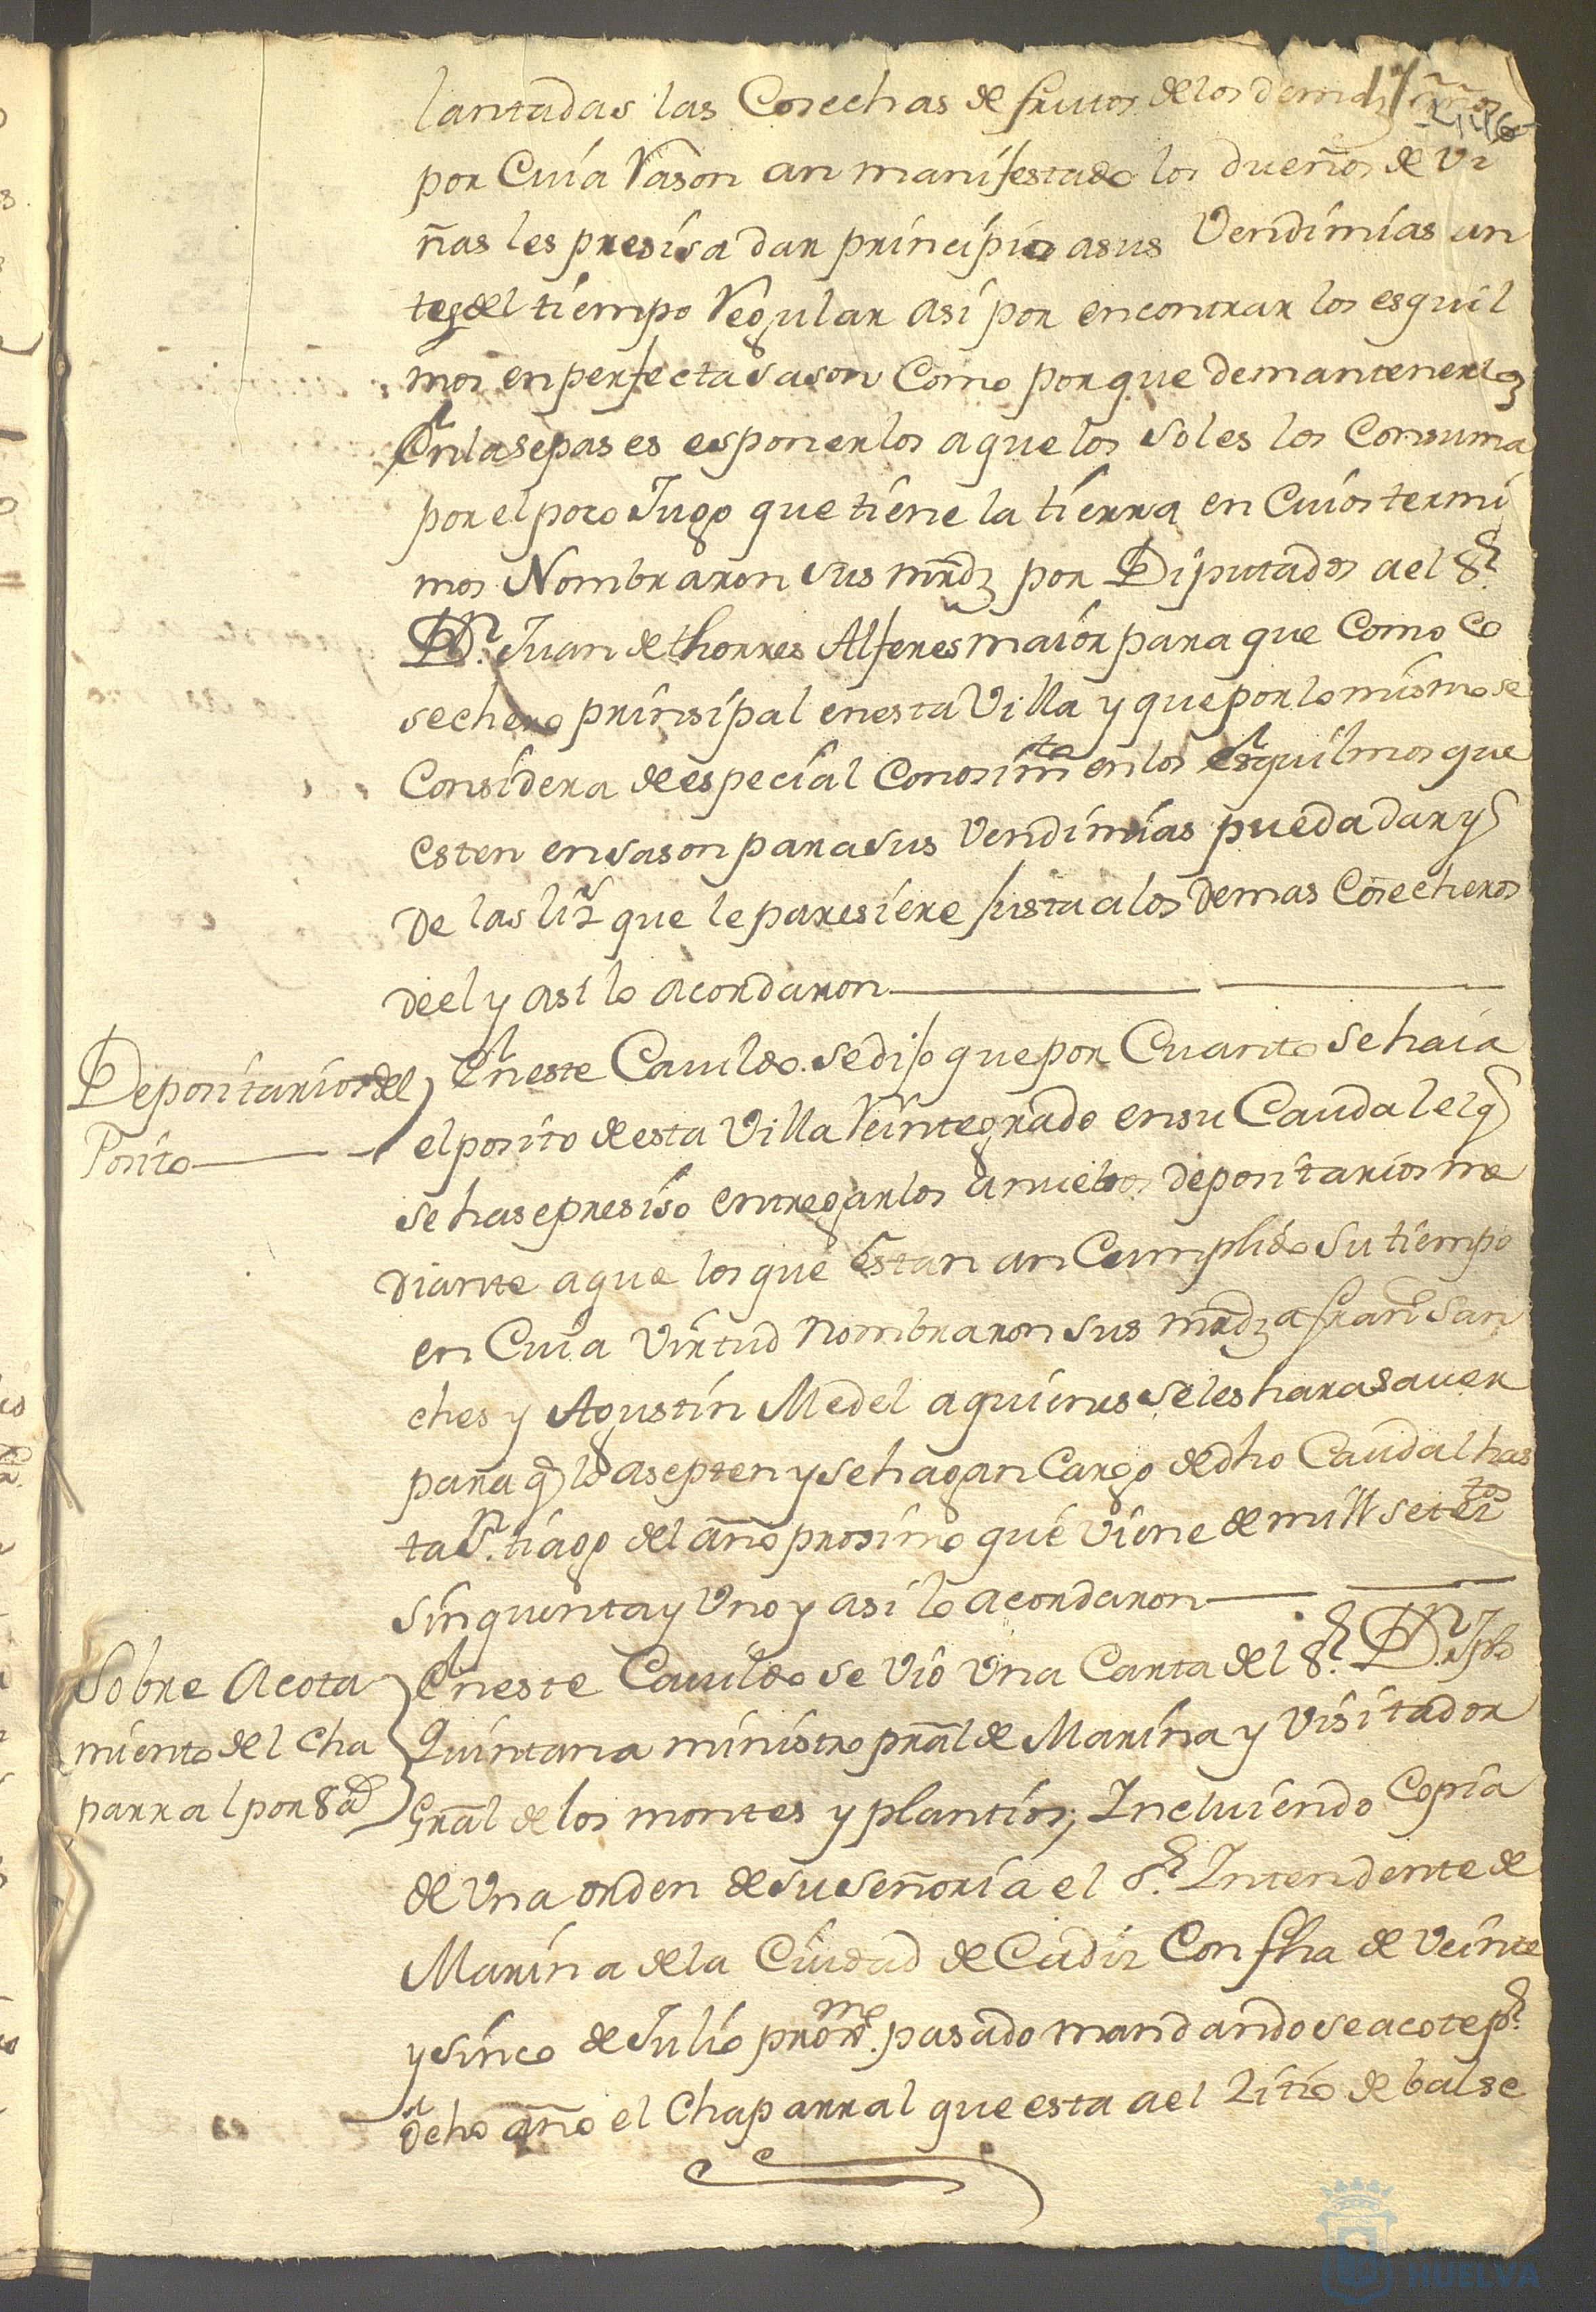 lantadas las Cosechas de frutos de los demas años
por Cuia Rason an manifestado los dueños de Vi
ñas les presisa dar principio a sus Vendimias an
tes del tiempo Regular asi por encontrar los esquil
mos en perfecta sason Como porque demantenerlos
En las sepas es esponerlos a que los soles los Consuma
por el poco Jugo que tiene la tierra en Cuios termi
mos Nombraron sus mrds por Diputados a el Sr.
Dn. Juan de thorres Alferes maior para que Como Co
sechero prinsipal en esta Villa y que por lo mismo se
Considera de especial Conosimto en los Esquilmos que
esten en sason para sus Vendimias pueda dar ys
De las liz que le paresiere susta a los Demas Cosecheros
de el y asi lo acordaron
Depositarios del
Posito
En este Cavildo se dijo que por Cuanto se haia
el posito de esta Villa Reintegrado en su Caudal el q
se hase presiso entregarlos a nuebos depositarios me
diante a que los que Estan an Cumplido su tiempo
en Cuia Virtud nombraron sus mrds a franco San
ches y Agustin Medel a quienes se les hara saver
para q lo asepten y se hagan Cargo de dho Caudal has
ta Sn. tiago del año prosimo que Viene de mill setetos
sinquenta y Uno y asi lo acordaron
Sobre Acota
miento del Cha
parral por 8 ad
En este Cavildo se Vio Una Carta del Sr. Dn. Jph
Quintana ministro pral de Marina y Visitador
Gral de los montes y plantios, Incluiendo Copia
de Una orden de su señoria el Sr. Intendente de
Marina de la Ciudad de Cadiz Con fha de Veinte
y sinco de Julio proxmo. pasado mandando se acote pr.
dcho año el Chaparral que esta a el Zitio de balse
HUELVA